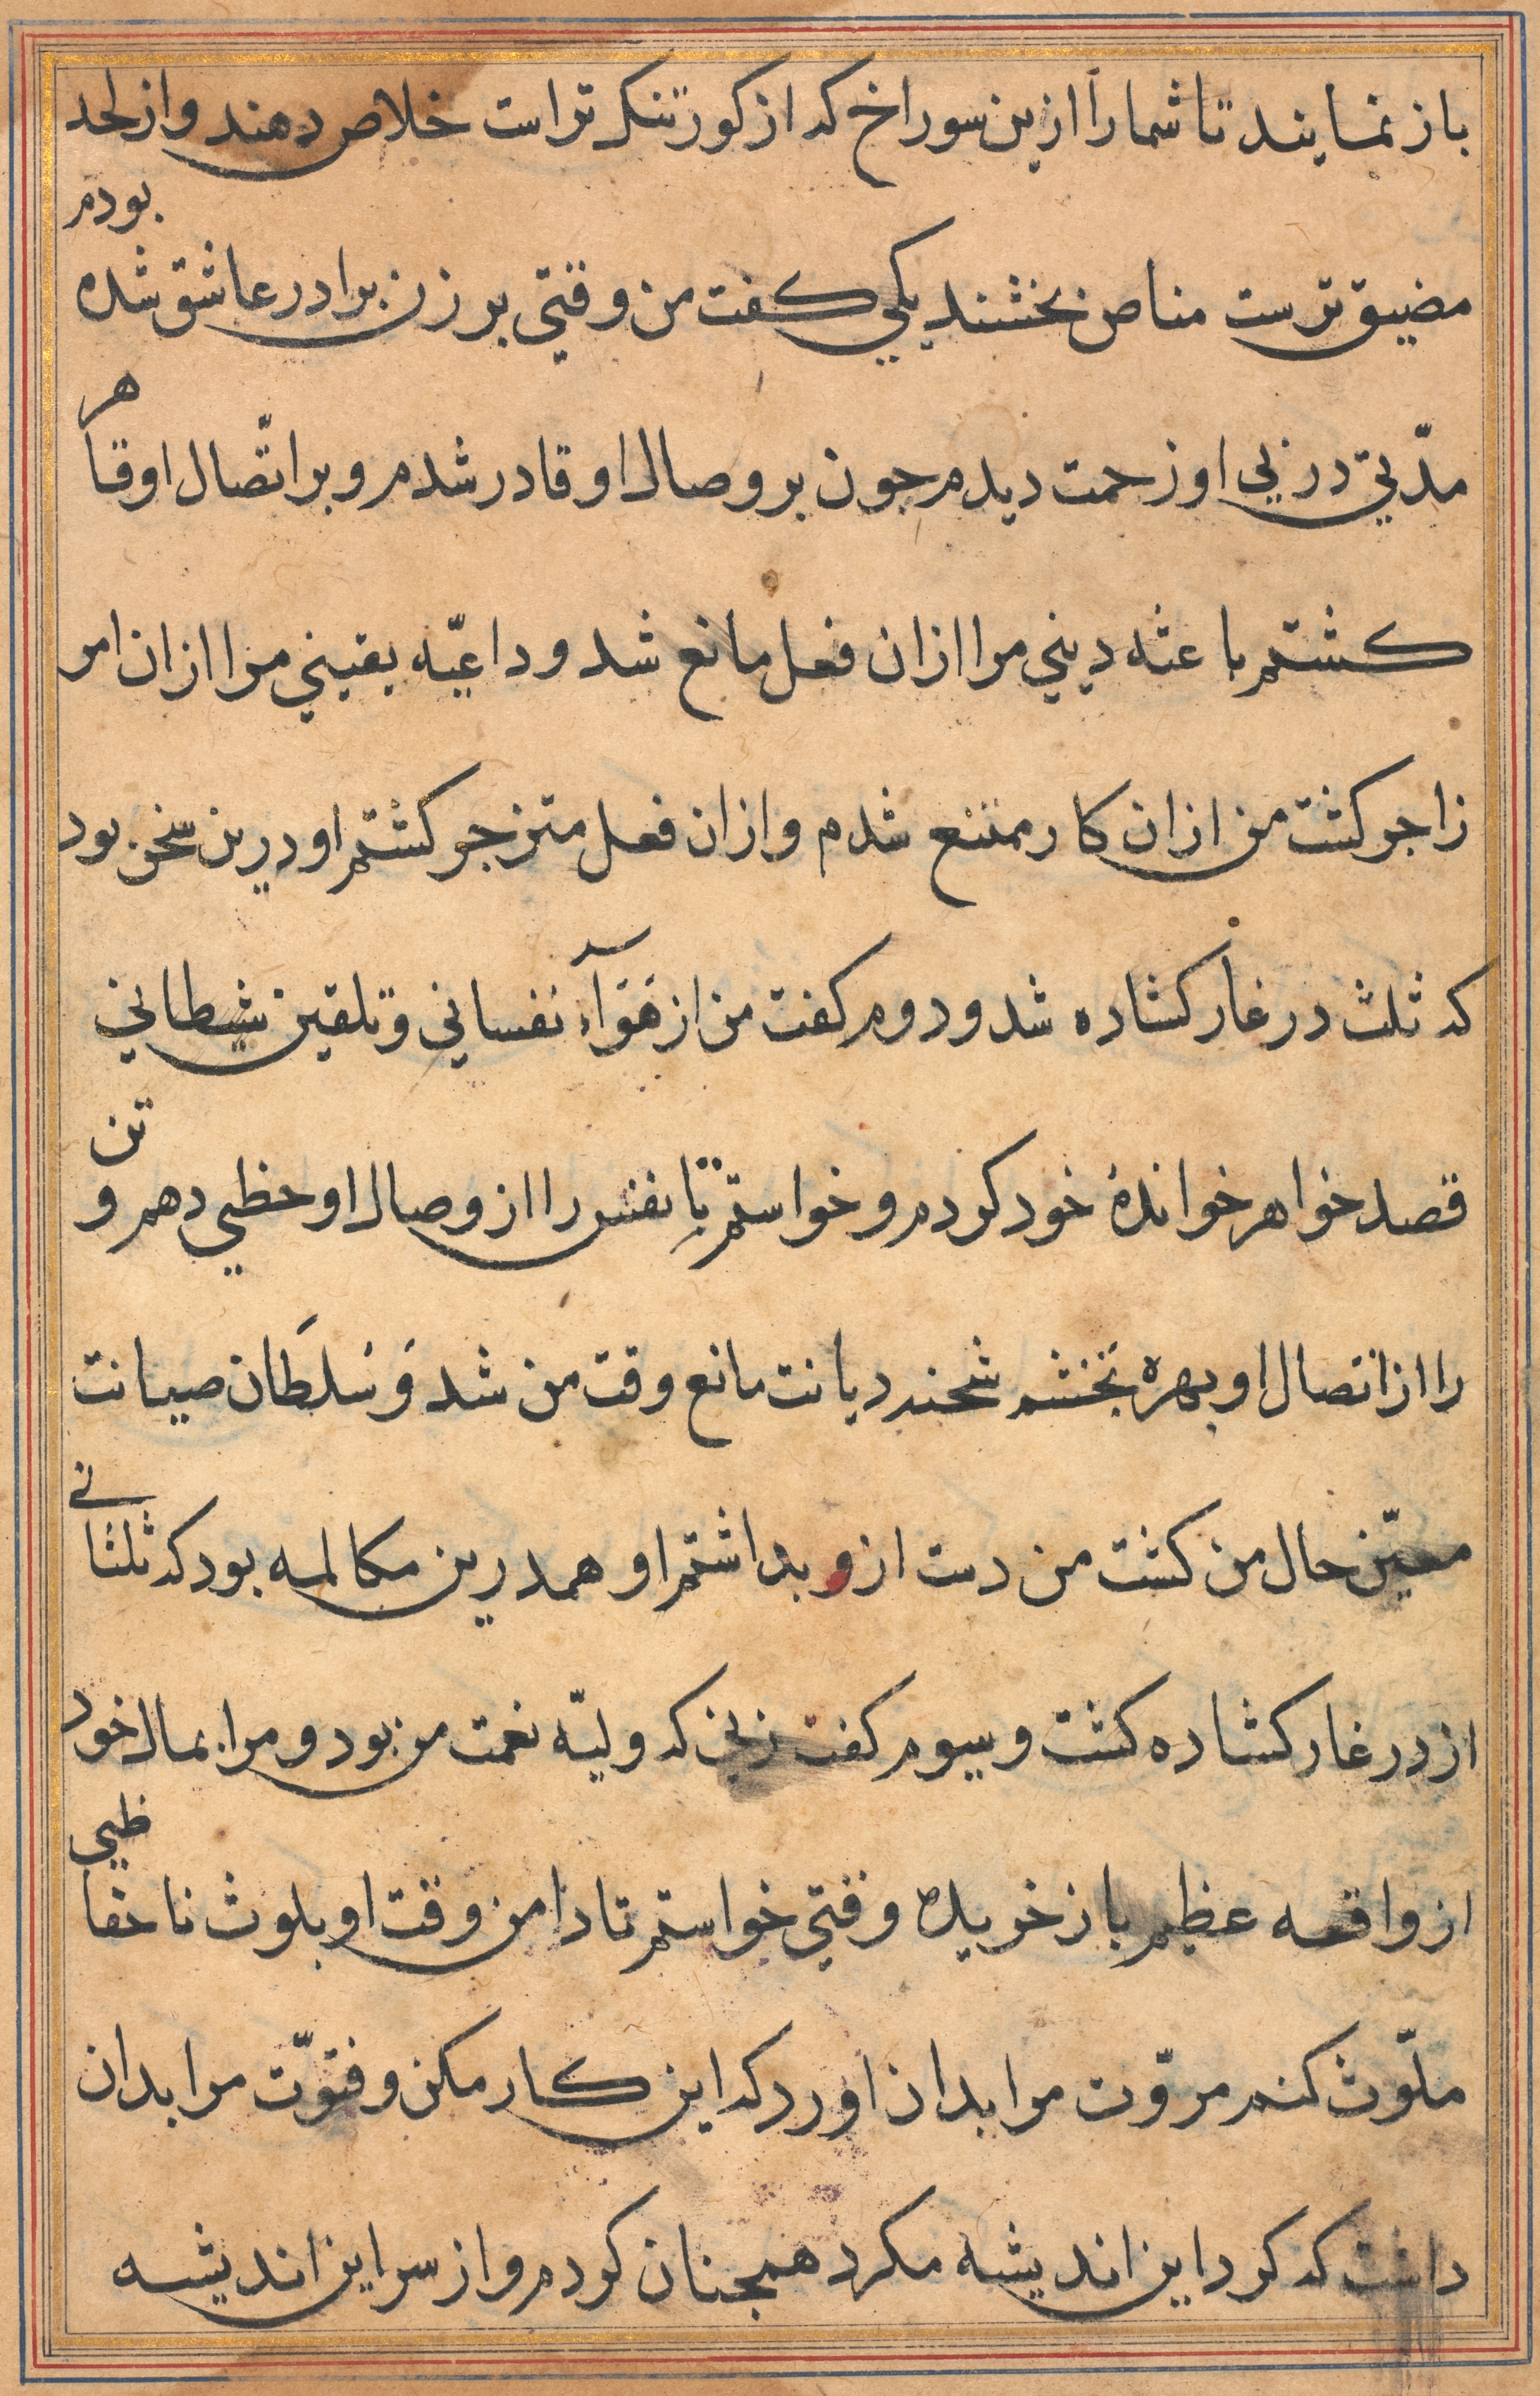 باز نمایند تا شما را ازین سوراخ که از کور تنکر تراست خلاص دهند و از لحد
مضیق ترست مناص بخشند یکی کفت من وقتی بر زن برادر عاشق شده بودم
مدّتی در پی او زحمت دیدم جون بر وصال او قادر شدم و بر اتّصال او قاهر
کشتم باعثه دینی مرا ازان فعل مانع شد و داعیّه یقینی مرا ازان امر
زاجر کشت من ازان کار ممتنع شدم و ازان فعل متزجر کشتم او درین سخن بود
که ثلث در غار کشاده شد و دوم کفت من از هَوَآء نفسانی و تلقین شیطانی
قصد خواهر خواندهٔ خود کردم و خواستم تا نفس را از وصال او حظی دهم و تن
را از اتصال او بهره بخشم شحنه دیانت مانع وقت من شد وَ سُلطَان صیانت
معیّن حال من کشت من دست ازو بداشتم او همدرین مکالمه بود که ثلث ثانی
از در غار کشاده کشت و سیوم کفت زنی که ولیّه نعمت من بود و مرا بمال خود
از واقعه عظیم باز خریده وقتی خواستم تا دامن وقت او بلوث نا حفاظی
ملوّث کنم مروّت مرا بدان اورد که این کار مکن و فتوّت مرا بدان
داشت که کرد این اندیشه مکرد همجنان کردم و از سر این اندیشه